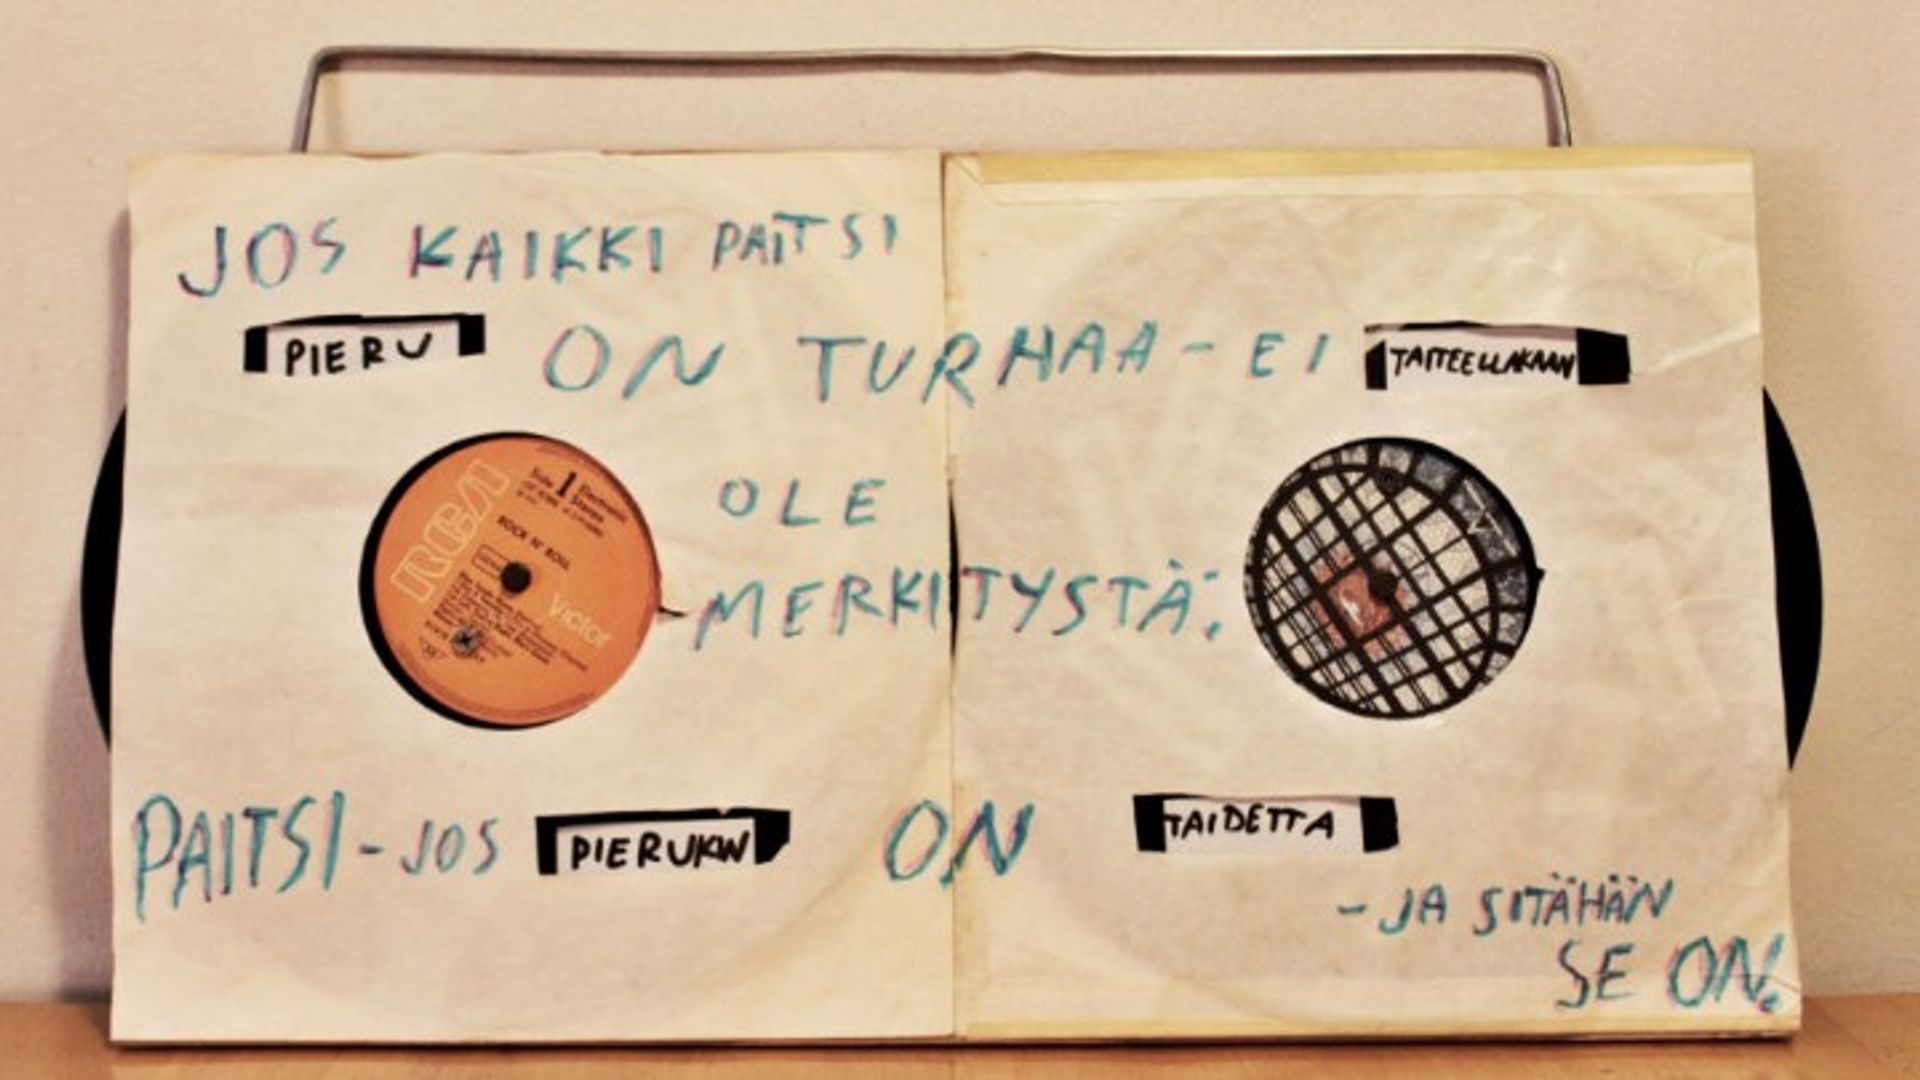 JOS KAIKKI PAITSI
PIERU ON TURHAA - EI TAITEELLAKAAN
OLE
MERKITYSTÄ:
PAITSI - JOS PIERUKIN ON TAIDETTA
- JA SITÄHÄN
SE ON.
RCA
Side 1
ROCK N' ROLL
Victor